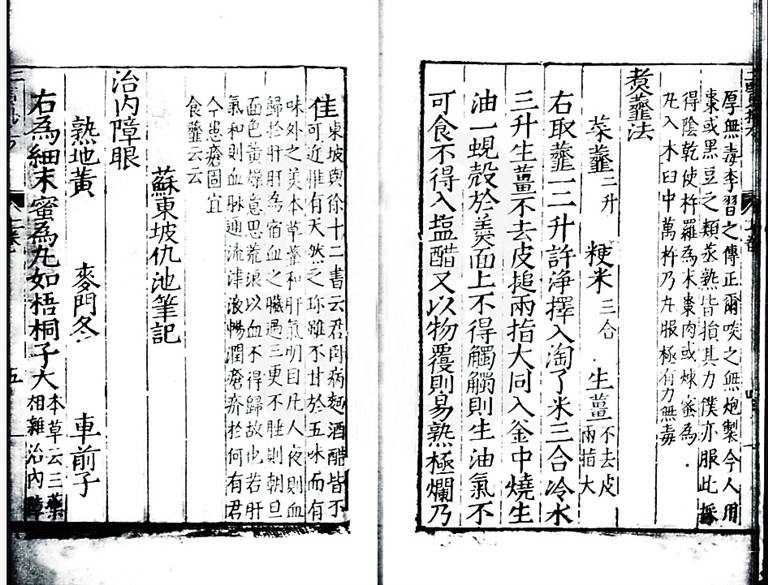 厚無毒李習之傳正爾啖之無炮製今人用
棗或黑豆之類蒸熟皆損其力僕亦服此採
得陰乾使杵羅為末棗肉或煉蜜為
丸入木臼中萬杵乃丸服極有力無毒
煑虀法
菜虀二升 粳米三合 生薑不去皮兩指大
右取虀一二升許淨擇入淘了米三合冷水
三升生薑不去皮搥兩指大同入釜中燒生
油一蜆殼於羹面上不得觸觸則生油氣不
可食不得入塩醋又以物覆則易熟極爛乃
佳東坡與徐十二書云君卧病麵酒醋皆不
可近惟有天然之珍雖不甘於五味而有
味外之美本草虀和肝氣明目凡人夜則血
歸於肝肝為宿血之臟過三更不睡則朝旦
面色黃燥意思荒浪以血不得歸故也若肝
氣和則血脉通流津液暢潤瘡疥於何有君
今患瘡固宜
食虀云云
蘇東坡仇池筆記
治内障眼
熟地黃 麥門冬 車前子
右為細末蜜為丸如梧桐子大本草云三藥相雜治内障
五